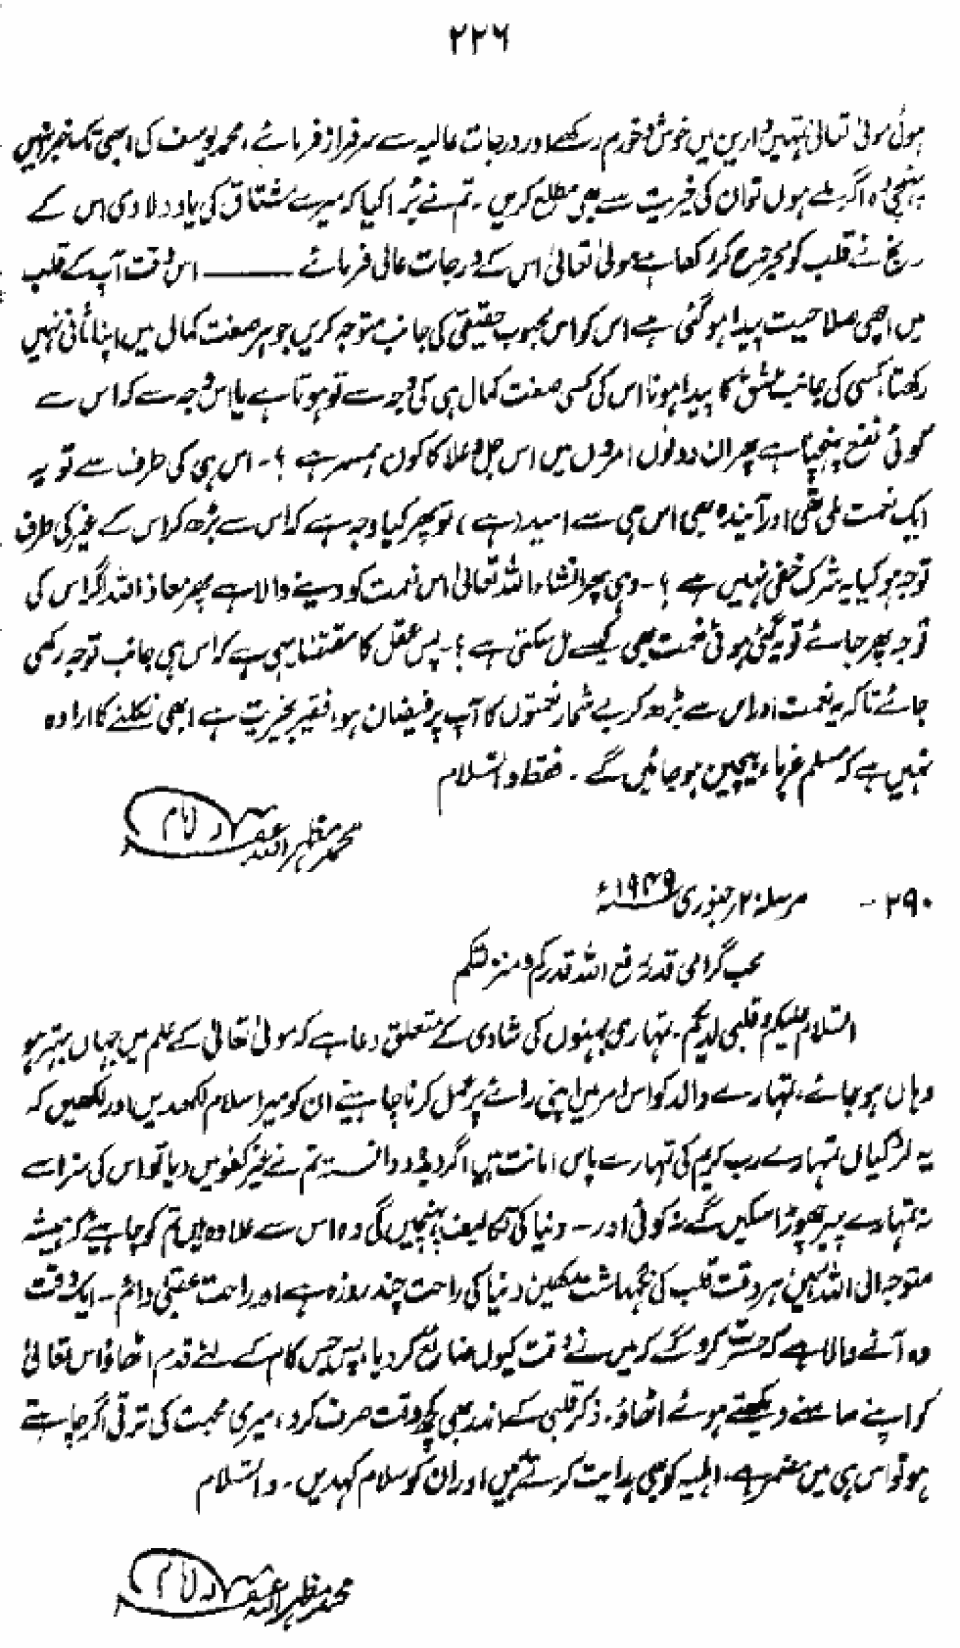 ۲۲۶
ہوئی مولیٰ تعالیٰ تمہیں دارین میں خوش و خرم رکھے اور درجات عالیہ سے سرفراز فرمائے، محمد یوسف کی ابھی تک خبر نہیں
پہنچی وہ اگر ملے ہوں تو ان کی خیریت سے بھی مطلع کریں۔ تم نے بُرا کیا کہ میرے مشتاق کی یاد دلا دی اس کے
رنج نے قلب کو مجروح کر رکھا ہے مولیٰ تعالیٰ اس کے درجات عالی فرمائے ——— اس وقت آپ کے قلب
میں اچھی صلاحیت پیدا ہو گئی ہے اس کو اس محبوب حقیقی کی جانب متوجہ کریں جو ہر صفت کمال میں اپنا ثانی نہیں
رکھتا، کسی کی جانب عشق کا پیدا ہونا اس کی کسی صفت کمال ہی کی وجہ سے تو ہوتا ہے یا اس وجہ سے کہ اس سے
کوئی نفع پہنچتا ہے پھر ان دونوں امروں میں اس جل و علا کا کون ہمسر ہے ؟۔ اس ہی کی طرف سے تو یہ
ایک نعمت ملی تھی اور آیندہ بھی اس ہی سے امید (ہے) تو پھر کیا وجہ ہے کہ اس سے بڑھ کر اس کے غیر کی طرف
توجہ ہو کیا یہ شرک خفی نہیں ہے ؟۔ وہی پھر انشاء اللہ تعالیٰ اس نعمت کو دینے والا ہے پھر معاذ اللہ اگر اس کی
توجہ پھر جائے تو یہ گئی ہوئی نعمت بھی کیسے مل سکتی ہے ؟۔ پس عقل کا مقتضا یہی ہے کہ اس ہی جانب توجہ رکھی
جائے تاکہ یہ نعمت اور اس سے بڑھ کر بے شمار نعمتوں کا آپ پر فیضان ہو، فقیر بخیریت ہے ابھی نکلنے کا ارادہ
نہیں ہے کہ مسلم غرباء بیچین ہو جائیں گے۔ فقط والسلام
محمد مظہر اللہ غفرلہ والامام
۲۹۰- مرسلہ ۲۰ جنوری ۱۹۴۹ء
محب گرامی قدر رفع اللہ قدرکم و منزلتکم
السلام علیکم و قلبی لدیکم۔ تمہاری بہنوں کی شادی کے متعلق دعا ہے کہ مولیٰ تعالیٰ کے علم میں جہاں بہتر ہو
وہاں ہو جائے، تمہارے والد کو اس امر میں اپنی رائے پر عمل کرنا چاہیے ان کو میرا سلام لکھدیں اور لکھیں کہ
یہ لڑکیاں تمہارے رب کریم کی تمہارے پاس امانت ہیں اگر دیدہ و دانستہ تم نے غیر کفو میں دیا تو اس کی سزا سے
نہ تمہارے پیر چھوڑا سکیں گے نہ کوئی اور— دنیا کی تکالیف پہنچیں گی وہ اس سے علاوہ ہیں تم کو چاہیے کہ ہمیشہ
متوجہ الی اللہ رہیں ہر وقت قلب کی نگہداشت رکھیں دنیا کی راحت چند روزہ ہے اور راحت عقبیٰ دائم۔ ایک وقت
وہ آنے والا ہے کہ حسرت کرو گے کہ میں نے وقت کیوں ضایع کر دیا، پس جس کام کے لئے قدم اٹھاؤ اس تعالیٰ
کو اپنے سامنے دیکھتے ہوئے اٹھاؤ۔ ذکر قلبی کے اندر بھی کچھ وقت صرف کرو، میری محبت کی ترقی اگر چاہتے
ہو تو اس ہی میں مضمر ہے، اہلیہ کو بھی ہدایت کرتے رہیں اور ان کو سلام کہدیں۔ والسلام
محمد مظہر اللہ غفرلہ والامام